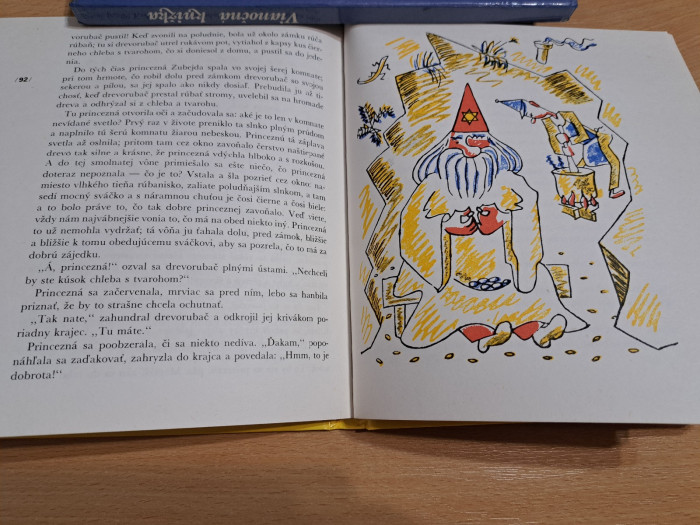 Vianočná knižka
vorubač pustil! Keď zvonili na poludnie, bola už okolo zámku rúča
rúbaň; tu si drevorubač utrel rukávom pot, vytiahol z kapsy kus čier-
neho chleba s tvarohom, čo si doniesol z domu, a pustil sa do jede-
nia.
/92/
Do tých čias princezná Zubejda spala vo svojej šerej komnate;
pri tom hrmote, čo robil dolu pred zámkom drevorubač so svojou
sekerou a pílou, sa jej spalo ako nikdy dosiaľ. Prebudila ju až ti-
chosť, keď drevorubač prestal rúbať stromy, uvelebil sa na hromade
dreva a odhrýzal si z chleba a tvarohu.
Tu princezná otvorila oči a začudovala sa: aké je to len v komnate
nevídané svetlo? Prvý raz v živote preniklo ta slnko plným prúdom
a naplnilo tú šerú komnatu žiarou nebeskou. Princezná tá záplava
svetla až oslnila; pritom tam cez okno zavoňalo čerstvo naštiepené
drevo tak silne a krásne, že princezná vdýchla hlboko a s rozkošou.
A do tej smolnatej vône primiešalo sa ešte niečo, čo princezná
doteraz nepoznala — čo je to? Vstala a šla pozrieť cez okno: na-
miesto vlhkého tieňa rúbanisko, zaliate poludňajším slnkom, a tam
sedí mocný sváčko a s náramnou chuťou je čosi čierne a čosi biele;
a to bolo práve to, čo tak dobre princeznej zavoňalo. Veď viete,
vždy nám najvábnejšie vonia to, čo má na obed niekto iný. Princezná
to už nemohla vydržať; tá vôňa ju ťahala dolu, pred zámok, bližšie
a bližšie k tomu obedujúcemu sváčkovi, aby sa pozrela, čo to má za
dobrú zájedku.
„Á, princezná!“ ozval sa drevorubač plnými ústami. „Nechceli
by ste kúsok chleba s tvarohom?“
Princezná sa začervenala, mrviac sa pred ním, lebo sa hanbila
priznať, že by to strašne chcela ochutnať.
„Tak nate,“ zahundral drevorubač a odkrojil jej krivákom po-
riadny krajec. „Tu máte.“
Princezná sa poobzerala, či sa niekto nedíva. „Ďakam,“ popo-
náhľala sa zaďakovať, zahryzla do krajca a povedala: „Hmm, to je
dobrota!“